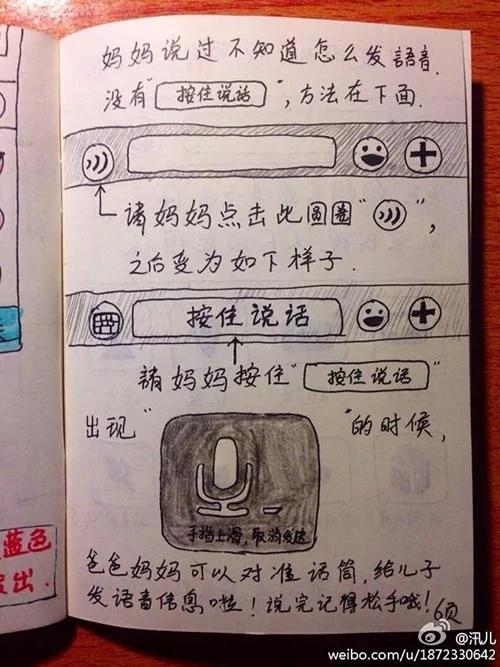 妈妈说过不知道怎么发語音.
没有"按住说话",方法在下面.
請妈妈点击此圆圈"",
之后变为如下样子.
按住说话
請妈妈按住"按住说话"
出现"
"的时候,
手指上滑,取消发送
爸爸妈妈可以对准话筒,给儿子
发语音信息啦!说完记得松手哦!
6页
蓝色
出.
@汛儿
weibo.com/u/1872330642